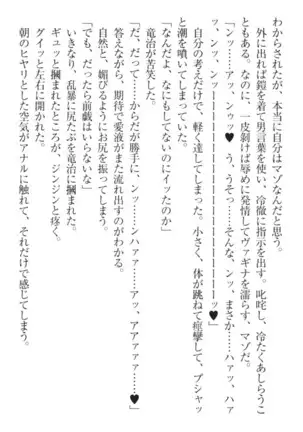 わからされたが、本当に自分はマゾなんだと思う。
　外に出れば鎧を着て男言葉を使い、冷徹に指示を出す。叱咤し、冷たくあしらうこ
ともある。なのに、一皮剝けば辱めに発情してヴァギナを濡らす、マゾだ。
「ンッ……アッ、ンゥッ♥　う、うそっ……そんな、ンッ、まさか……ハァッ、ハァ
ッ、ンッ、ンンッーーーーーーーーーーーーーーーーッ♥」
　自分の考えだけで、軽く達してしまった。小さく、体が跳ねて痙攣して、プシャッ
と潮を噴いてしまっていた。
「なんだよ、なにもしてないのにイッたのか」
　竜治が苦笑した。
「だ、だって……からだが勝手に、ンッ……ンハァァ……アッ、アアァァ……♥」
　答えながら、期待で愛液がまた流れ出すのがわかる。
　自然と、媚びるようにお尻を振ってしまう。
「でも、だったら前戯はいらないな」
　いきなり、乱暴に尻たぶを竜治に摑まれた。
　ギュッと摑まれたところが、ジンジンと疼く。
　グイッと左右に開かれた。
　朝のヒヤリとした空気がアナルに触れて、それだけで感じてしまう。